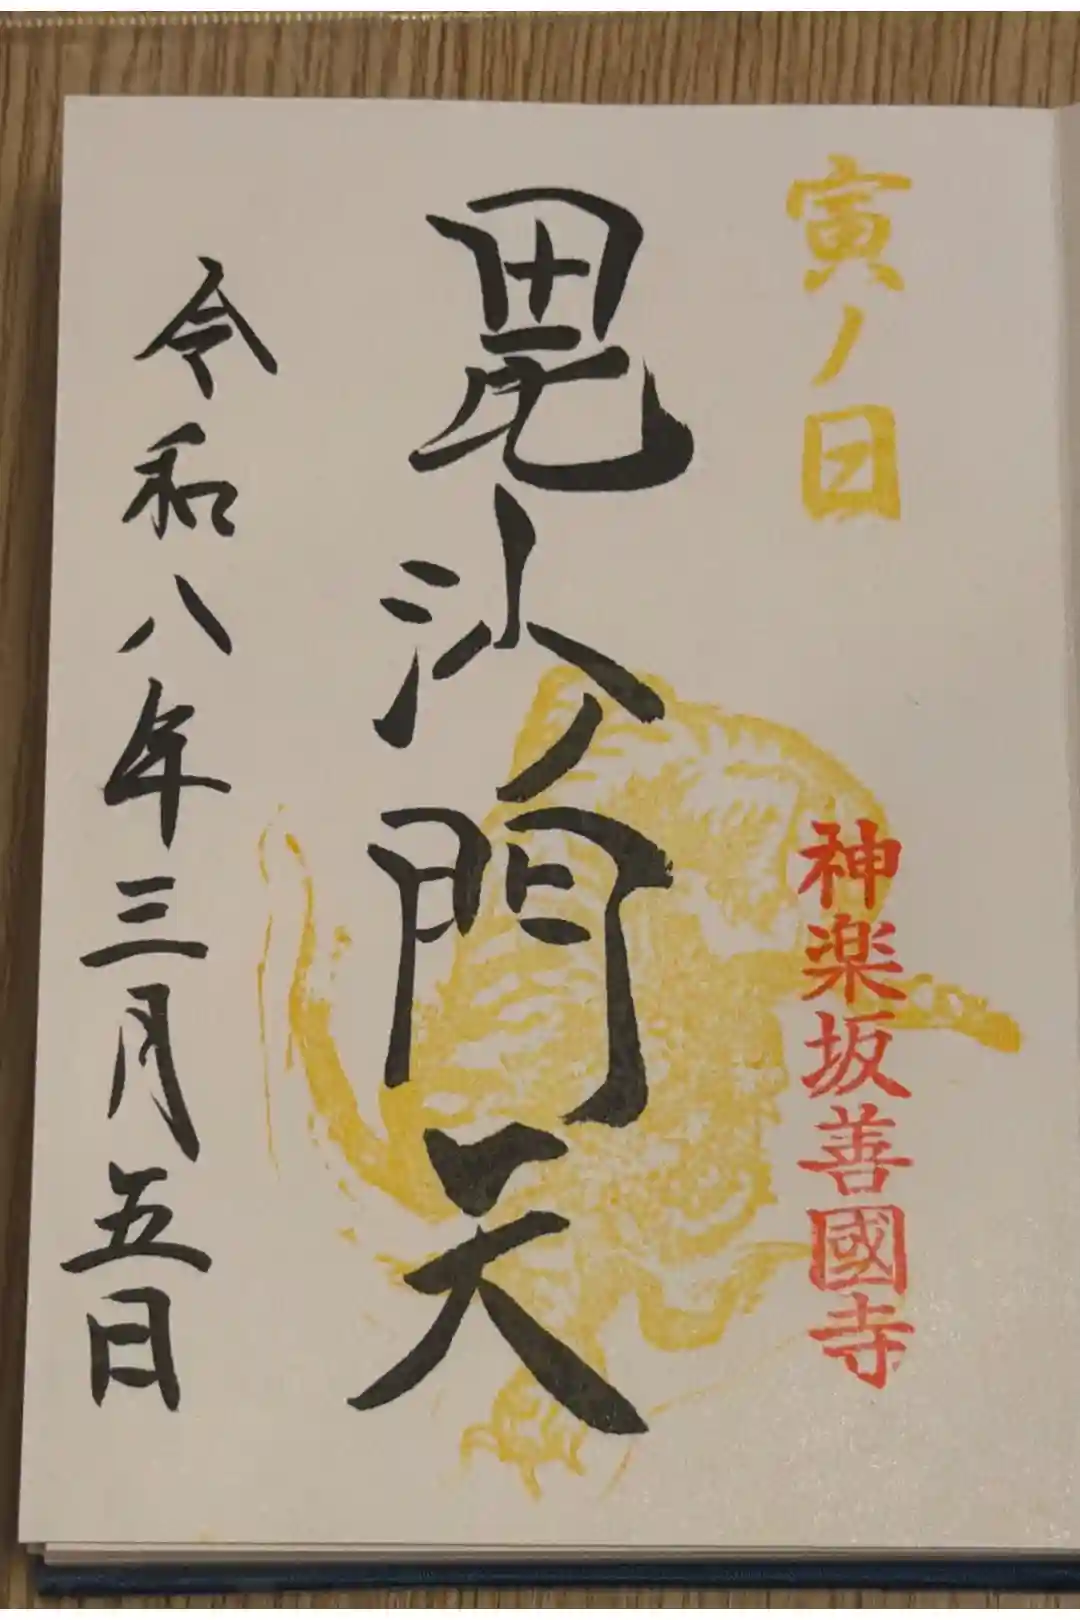 寅ノ日
神楽坂善國寺
毘沙門天
令和八年三月五日